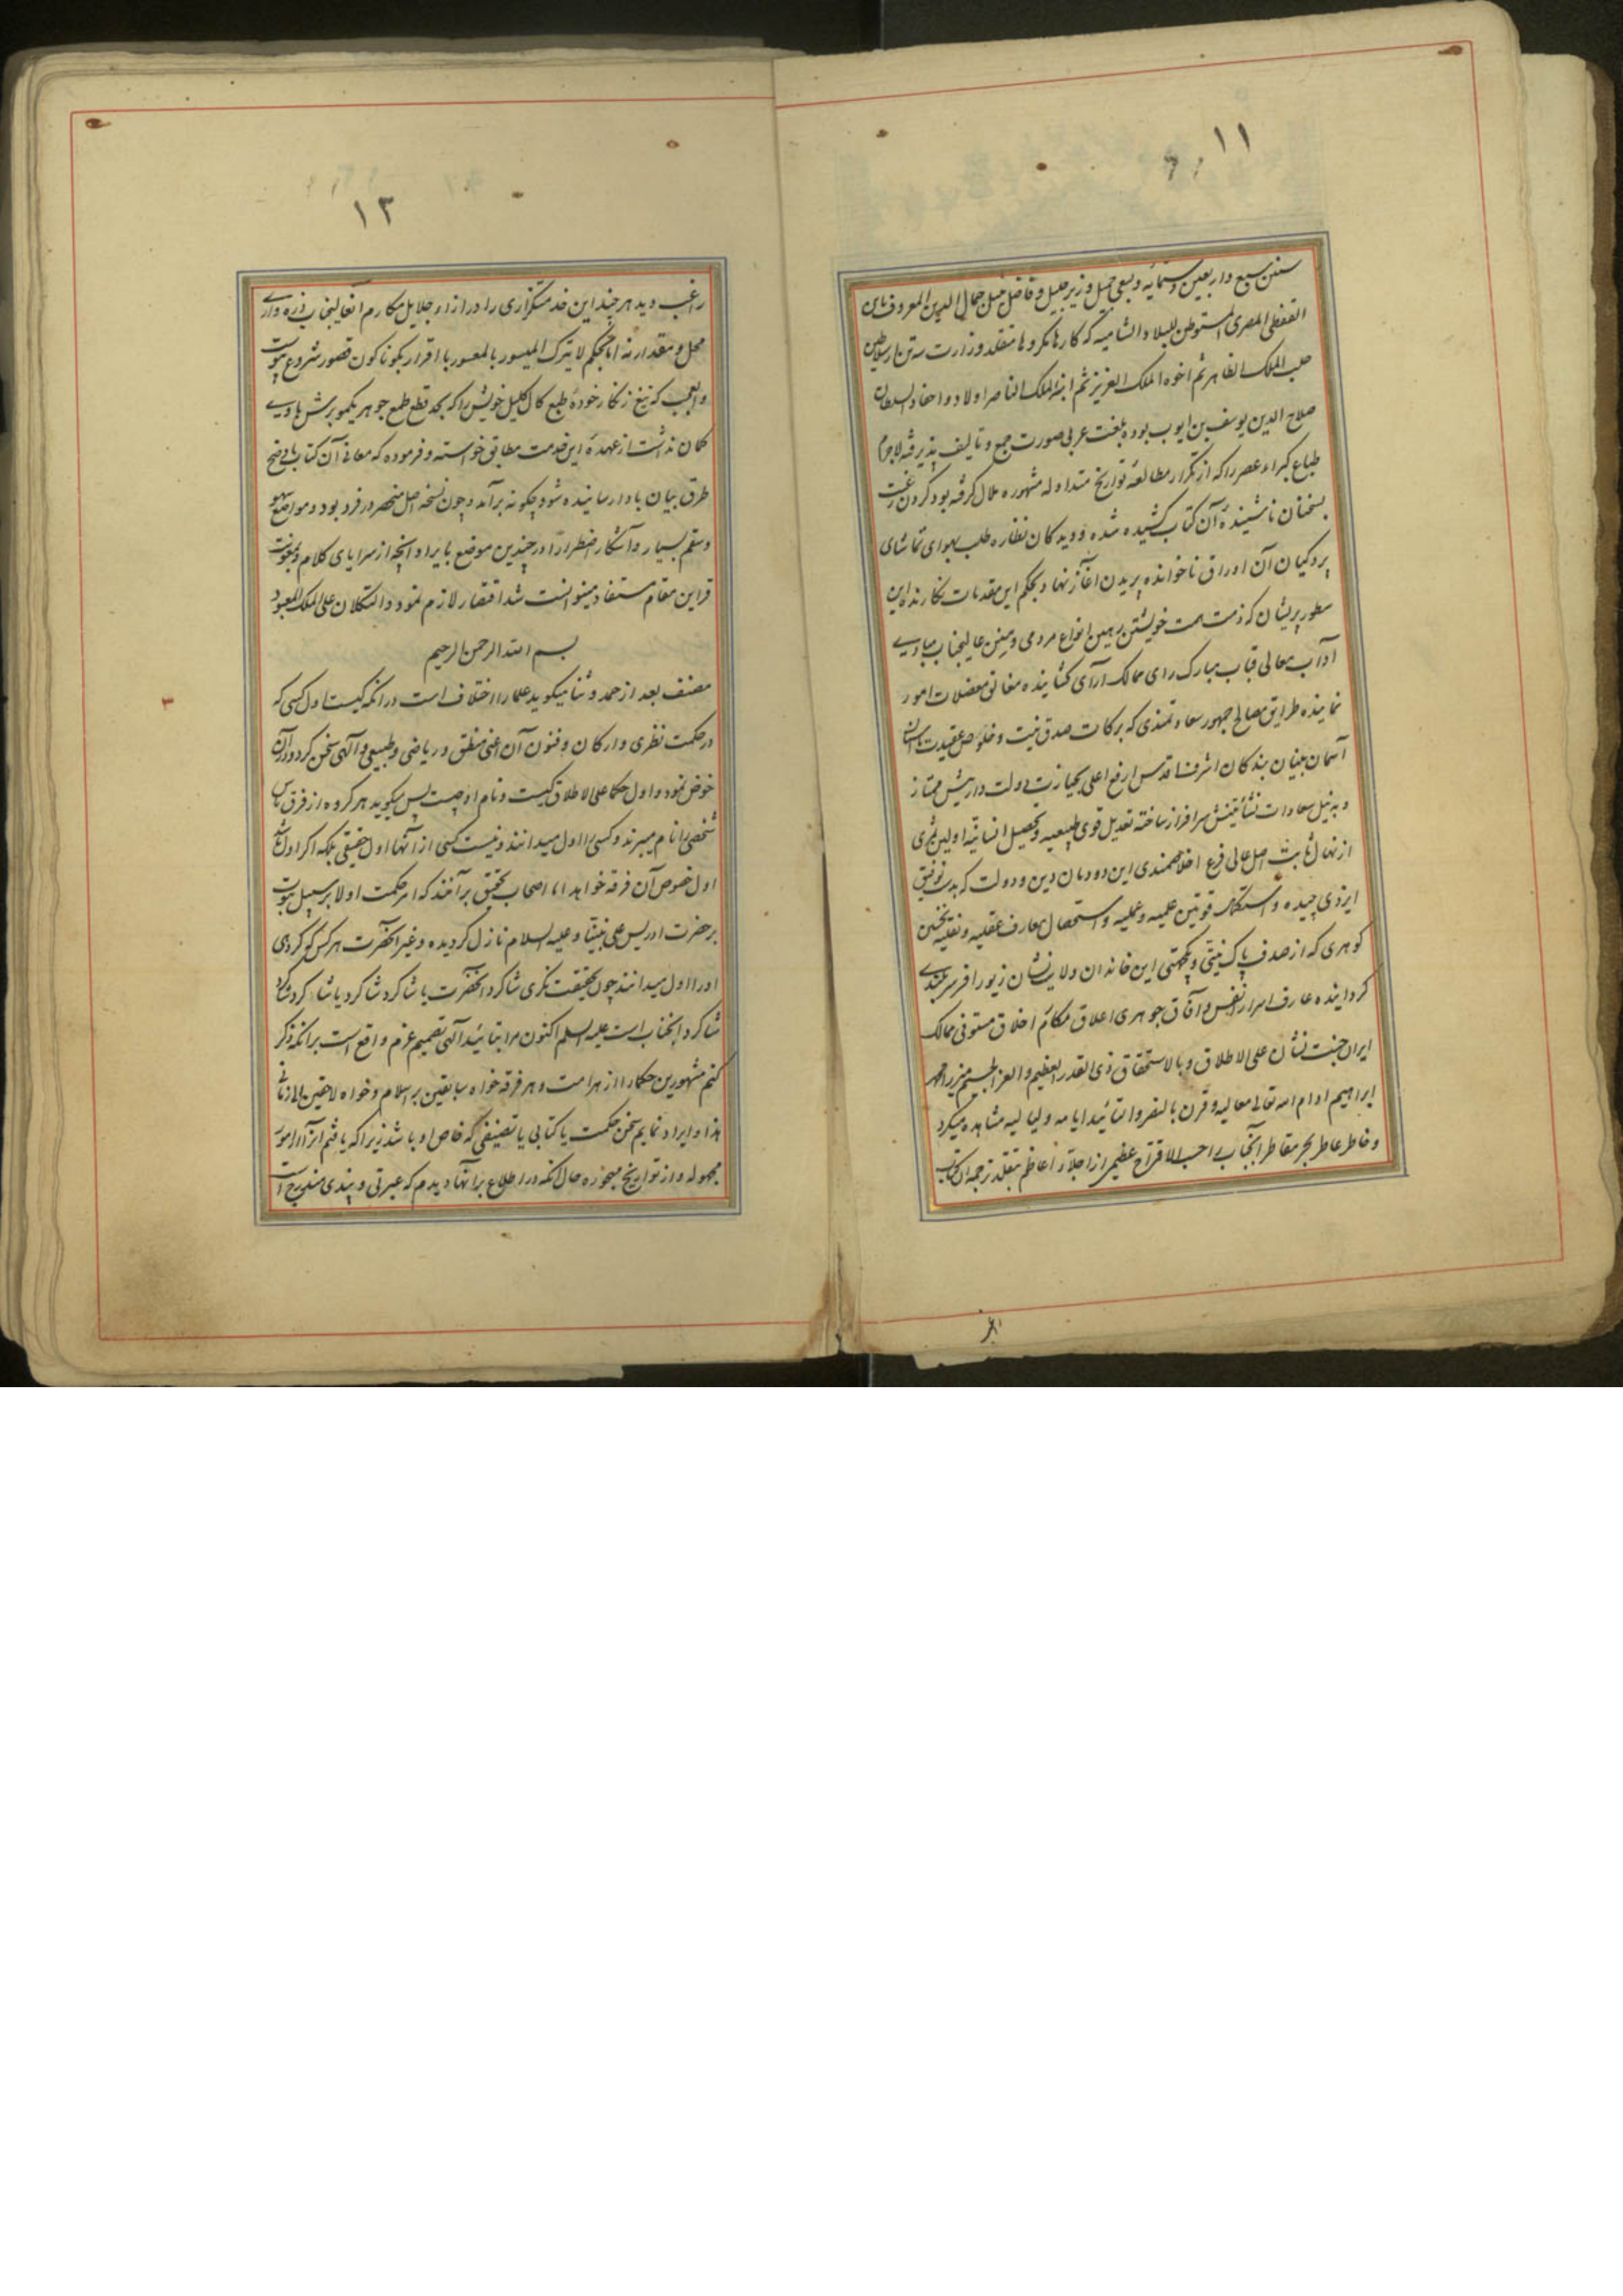 ۱۱
سنین سبع و اربعین و ستمایه و بسعی جمیل وزیر جلیل و فاضل نبیل جمال الدین المعروف بابن
القفطی المصری المستوطن للبلاد الشامیه که کارها نکرو ها متقلد وزارت سه تن از سلاطین
حلب الملک الظاهر ثم اخوه الملک العزیز ثم ابنه الملک الناصر اولاد و احفاد السلطان
صلاح الدین یوسف بن ایوب بوده بلغت عربی صورت جمع و تالیف پذیرفته لاجرم
طباع کبراء عصر را که از تکرار مطالعه تواریخ متداوله مشهوره ملال گرفته بود گردن رغبت
بسخنان ناشنیده آن کتاب کشیده شده و دیدگان نظاره طلب بهوای تماشای
پردگیان آن اوراق ناخوانده پریدن آغاز نهاد بحکم این مقدمات نگارنده این
سطور پریشان که ذمت همت خویشتن رهین انواع مردمی و منن عالیجناب مبادی
آداب معالی قباب مبارک رای ممالک آرای گشاینده مغالق معضلات امور
نماینده طرایق مصالح جمهور سعادتمندی که برکات صدق نیت و خلوص عقیدت باستان
آسمان بنیان بندگان اشرف اقدس ارفع اعلی بحیازت دولت داریش ممتاز
و به نیل سعادات نشأتینش سرافراز ساخته تعدیل قوی طبیعیه و تحصیل انسانیه اولین ثمری
از نهال ثابت اصل عالی فرع اخلاصمندی این دودمان دین و دولت که بدست توفیق
ایزدی چیده و استکمال قوتین علمیه و عملیه و استحصال معارف عقلیه و نقلیه نخستین
گوهری که از صدف پاک نیتی و یکجهتی این خاندان ولایت نشان زیور افسر سربلندی
گردانیده عارف اسرار انفس و آفاق جوهری اعلاق مکارم اخلاق مستوفی ممالک
ایران جنت نشان علی الاطلاق و بالاستحقاق ذی القدر العظیم و العز الجسیم میرزا محمد
ابراهیم ادام الله تعالی معالیه و قرن بالنصر و التائید ایامه و لیالیه مشاهده میکرد
و خاطر عاطر بحر مقاطر آنجناب را حسب الاقتراح عظیمی از اجلّه اعاظم بتقلد ترجمه آن کتاب
۱۲
راغب دید هر چند این خدمتگزاری را در ازاء جلایل مکارم آنعالیجناب ذره وار
محل و مقدار نه اما بحکم لا یترک المیسور بالمعسور با اقرار بگوناگون قصور شروع نمود
والعجب که تیغ زنگار خورده طبع کال کلیل خویش را که بجد قطع طمع جوهر یکمو برش باوی
گمان نداشت از عهده این خدمت مطابق خواسته و فرموده که معانی آن کتاب باوضح
طرق بیان با دا رسانیده شود چگونه برآمد و چون نسخه اصل منحصر در فرد بود و مواضع سهو
و سقم بسیار و آشکار اضطرارا در چندین موضع بایراد آنچه از سرایای کلام و بمعونت
قراین مقام مستفاد میتوانست شد اقتصار لازم نمود و التکلان علی الملک المعبود
بسم الله الرحمن الرحیم
مصنف بعد از حمد و ثنا میگوید علما را اختلاف است در آنکه کیست اول کسی که
در حکمت نظری و ارکان و فنون آن اعنی منطق و ریاضی و طبیعی و آلهی سخن کرد و در آن
خوض نمود و اول حکما علی الاطلاق کیست و نام او چیست پس میگوید هر گروه از فرق ناس
شخصی را نام میبرند و کسی را اول میدانند و نیست کسی از آنها اول حقیقی بلکه اگر اول باشد
اول خصوص آن فرقه خواهد اما اصحاب تحقیق برآنند که امر حکمت اولا بر سبیل نبوت
بر حضرت ادریس علی نبینا و علیه السلام نازل گردیده و غیر آنحضرت هر کس که گروهی
او را اول میدانند چون بحقیقت نگری شاگرد آنحضرت یا شاگرد شاگرد یا شاگرد شاگرد
شاگرد آنجناب است علیه السلم اکنون مرا بتائید آلهی تصمیم عزم واقع است بر آنکه ذکر
کنم مشهورین حکما را از هر امت و هر فرقه خواه سابقین بر اسلام و خواه لاحقین الی زماننا
هذا و ایراد نمایم سخن حکمت یا کتابی یا تصنیفی که خاص او باشد زیرا که یافتم آنرا از امور
مجهوله و از تواریخ مهجوره حال آنکه در اطلاع بر آنها دیدم که عبرتی و پندی مندرج است
۳